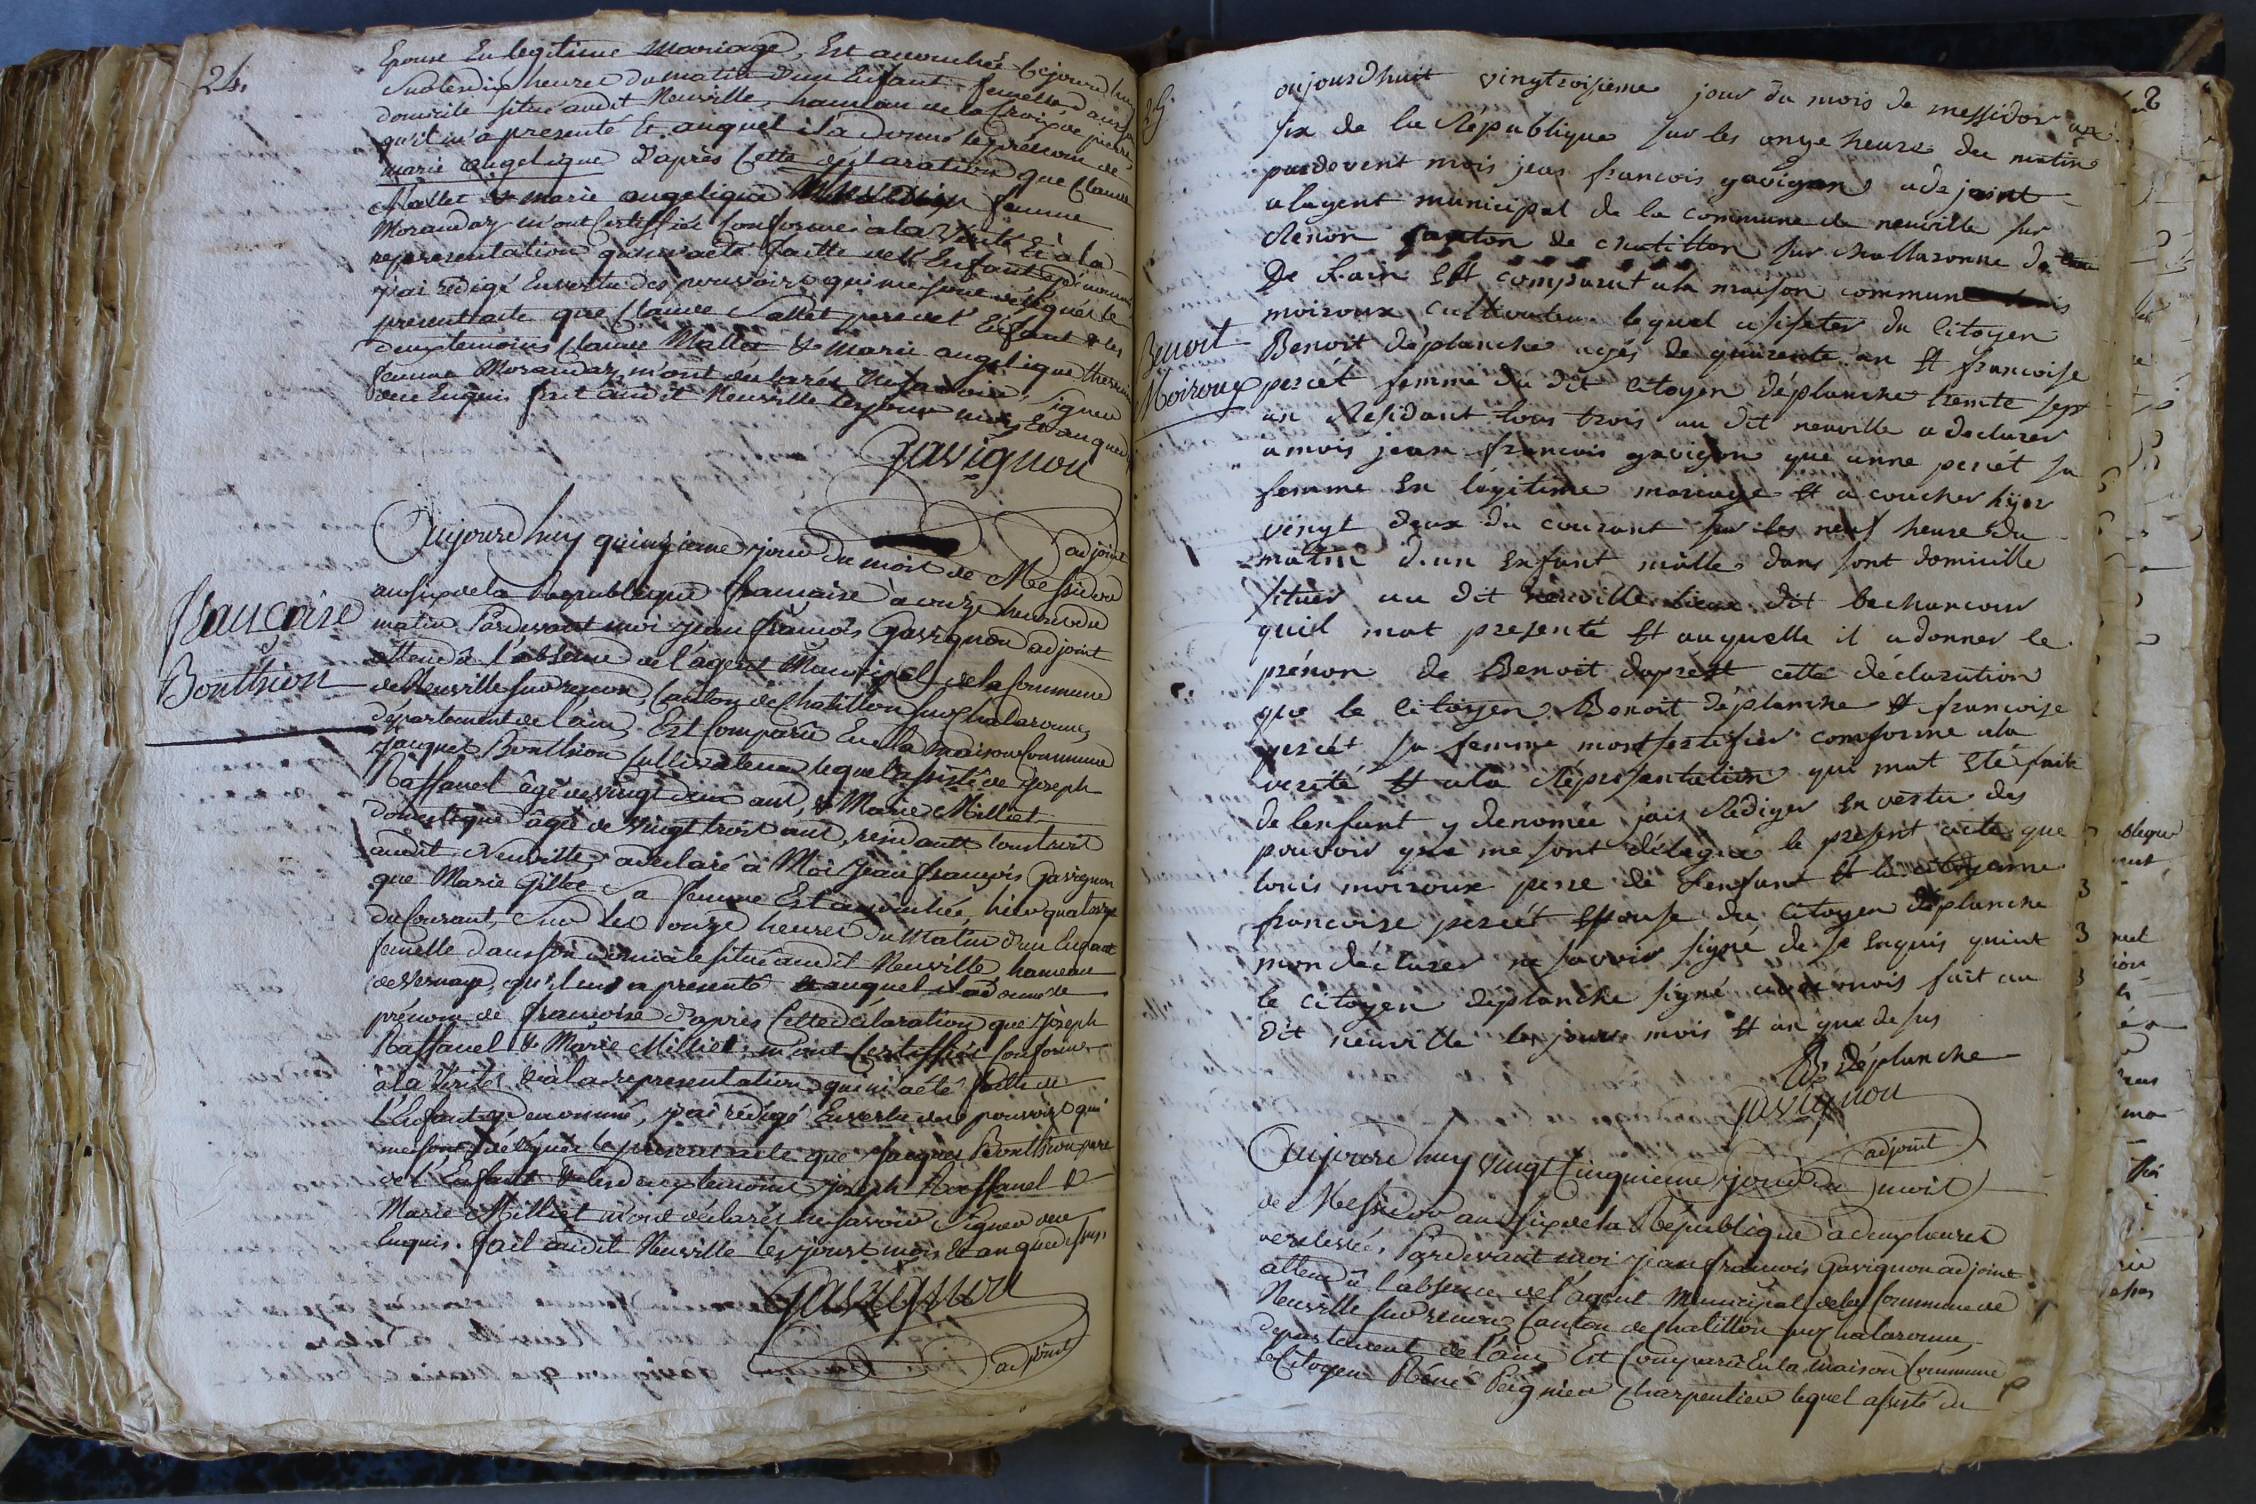 24.
Epouse En legitime Mariage, Est accouchée cejourd'huy
Sur les dix heures du matin d'un Enfant femelle dans son
domicile situé audit Neuville, hameau de la Croix de pierre,
qu'il m'a presenté Et auquel il a donné le prénom de
marie angelique D'après Cette déclaration que Claude
Mallet & marie angelique femme
Morandaz m'ont Certiffiée Conforme à la Vérité Et à la
representation qui m'a été faitte de l'Enfant y dénommé
j'ai rédigé En vertu des pouvoirs qui me sont délégués le
présent acte que Claude Sallet pere de l'Enfant & les
deux temoins Claude Mallet & Marie angelique
femme Morandaz m'ont déclarés ne savoir Signer
de ce Enquis fait audit Neuville les jour mois Et an que d
Gavignon
adjoint
francoise
Bonthion
Aujourd'huy quinzieme jour du mois de Messidor
an six de la Republique francaise à onze heures du
matin Pardevant moi Jean françois Gavignon adjoint
attendu l'absence de l'agent Municipal de la Commune
de Neuville sur renon, Canton de Chatillon sur Chalaronne
département de l'ain, Est Comparû En la maison Commune
Jacques Bonthion Cultivateur lequel assisté de Joseph
Raffanel âgé de vingt deux ans, & Marie Milliet
domestique âgée de vingt trois ans, résidants tous trois
audit Neuville, a déclaré à Moi Jean françois Gavignon
que Marie Gillet Sa femme Est accouchée hier quatorze
du Courant, Sur les onze heures du Matin d'un Enfant
femelle dans son domicile situé audit Neuville hameau
de Vernaye, qu'il m'a presenté & auquel il a donné le
prénom de francoise D'après Cette déclaration que Joseph
Raffanel & Marie Milliet m'ont Certiffiée Conforme
à la Vérité, & à la representation qui m'a été faitte de
l'Enfant y denommé, j'ai rédigé En vertu des pouvoirs qui
me sont délégués le présent acte que Jacques Bonthion pere
de l'Enfant & les deux temoins Joseph Raffanel &
Marie Milliet m'ont déclarés ne savoir Signer de ce
Enquis. fait audit Neuville les jours mois Et an que dessus
Gavignon
adjoint
25
Benoit
Moiroux
aujourdhuit vingtroisieme jour du mois de messidor an
six de la République sur les onze heure du matin
pardevent mois jean francois gavignon adejoint
a lagent municipal de la commune de neuville sur
Renon canton de chatillon sur challaronne de
De Lain Est comparut a la maison commune louis
moiroux cultivateur lequel asister du Citoyen
Benoit déplanche agés de quarente an Et francoise
percét femme du dit Citoyen déplanche trente sept
an Residant tous trois au dit neuville a declarer
a mois jean francois gavignon que anne percét sa
femme En légitime mariage Et a coucher hÿer
vingt deux du courant sur les neuf heure du
matin d.un Enfant malle dans sont domicille
situer au dit neuville lieux dit bechancour
quil mat presenté Et auquelle il a donner le
prénon de Benoit daprest cette déclaration
que le Citoyen Benoit déplanche Et francoise
percét sa femme mont sertifier comforme a la
verité Et a la Répresentation qui mat Eté fait
de lenfant y denomée jais Rédiger En vertu des
pouvoir qui me sont délegue le present acte que
louis moiroux pere de Lenfant Et la citoyenne
francoise percét Epouse du citoyen déplanche
mon déclarer ne savoir signé de se Enquis quint
le citoyen déplanche signé avec mois fait au
dit neuville les jours mois Et an que desus
B. déplanche
gavignon
adjoint
Aujourd'huy vingt Cinquieme jour du mois
de Messidor an six de la République à deux heures
Pardevant moi Jean francois Gavignon adjoint
attendû l'absence de l'agent Municipal de la Commune de
Neuville sur renon, Canton de Chatillon sur Chalaronne
département de l'ain Est Comparû En la maison Commune
le Citoyen Réné Peignier Charpentier lequel assisté du